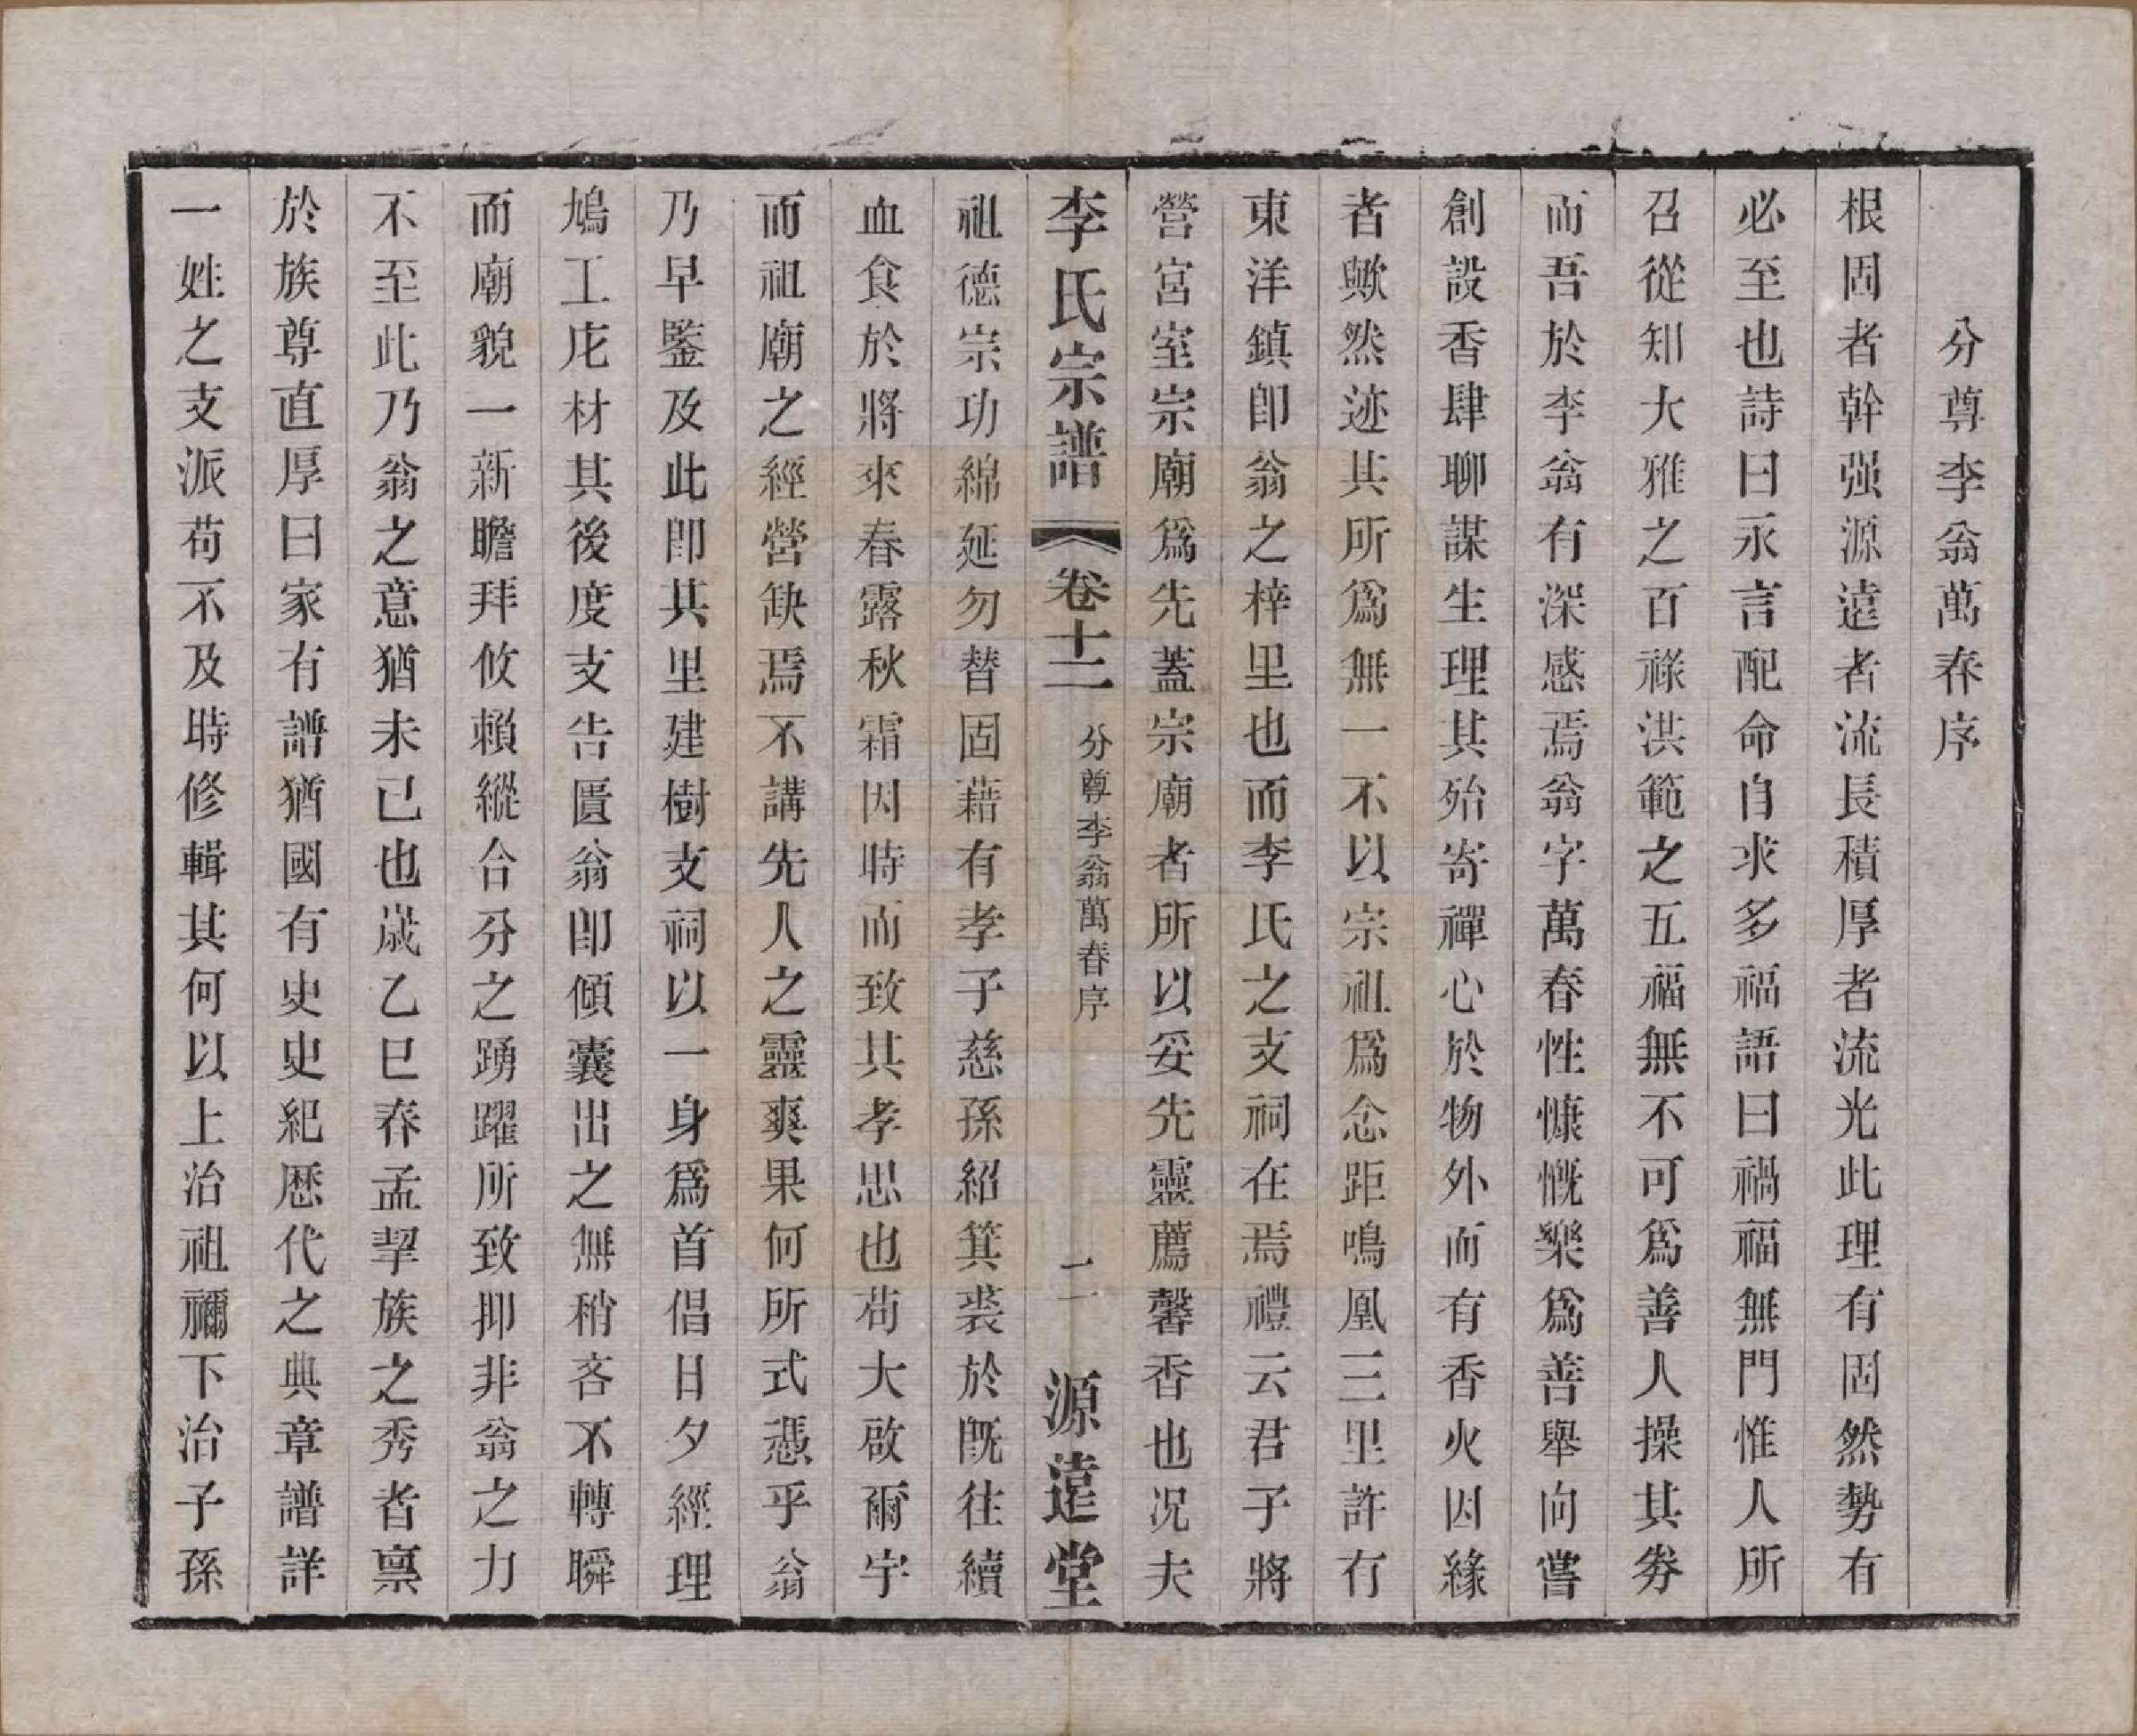 分尊李翁萬春序
根固者幹强源遠者流長積厚者流光此理有固然勢有
必至也詩曰永言配命自求多福語曰禍福無門惟人所
召從知大雅之百祿洪範之五福無不可爲善人操其券
而吾於李翁有深感焉翁字萬春性慷慨樂爲善舉向嘗
創設香肆聊謀生理其殆寄禪心於物外而有香火因緣
者歟然迹其所爲無一不以宗祖爲念距鳴凰三里許有
東洋鎮卽翁之梓里也而李氏之支祠在焉禮云君子將
營宮室宗廟爲先蓋宗廟者所以妥先靈薦馨香也况夫
李氏宗譜 卷十二 分尊李翁萬春序 二 源遠堂
祖德宗功綿延勿替固藉有孝子慈孫紹箕裘於既往續
血食於將來春露秋霜因時而致其孝思也苟大啟爾宇
而祖廟之經營缺焉不講先人之靈爽果何所式憑乎翁
乃早鑒及此卽其里建樹支祠以一身爲首倡日夕經理
鳩工庀材其後度支告匱翁卽傾囊出之無稍吝不轉瞬
而廟貌一新瞻拜攸賴縱合分之踴躍所致抑非翁之力
不至此乃翁之意猶未已也歲乙巳春孟挈族之秀者禀
於族尊直厚曰家有譜猶國有史史紀歷代之典章譜詳
一姓之支派苟不及時修輯其何以上治祖禰下治子孫